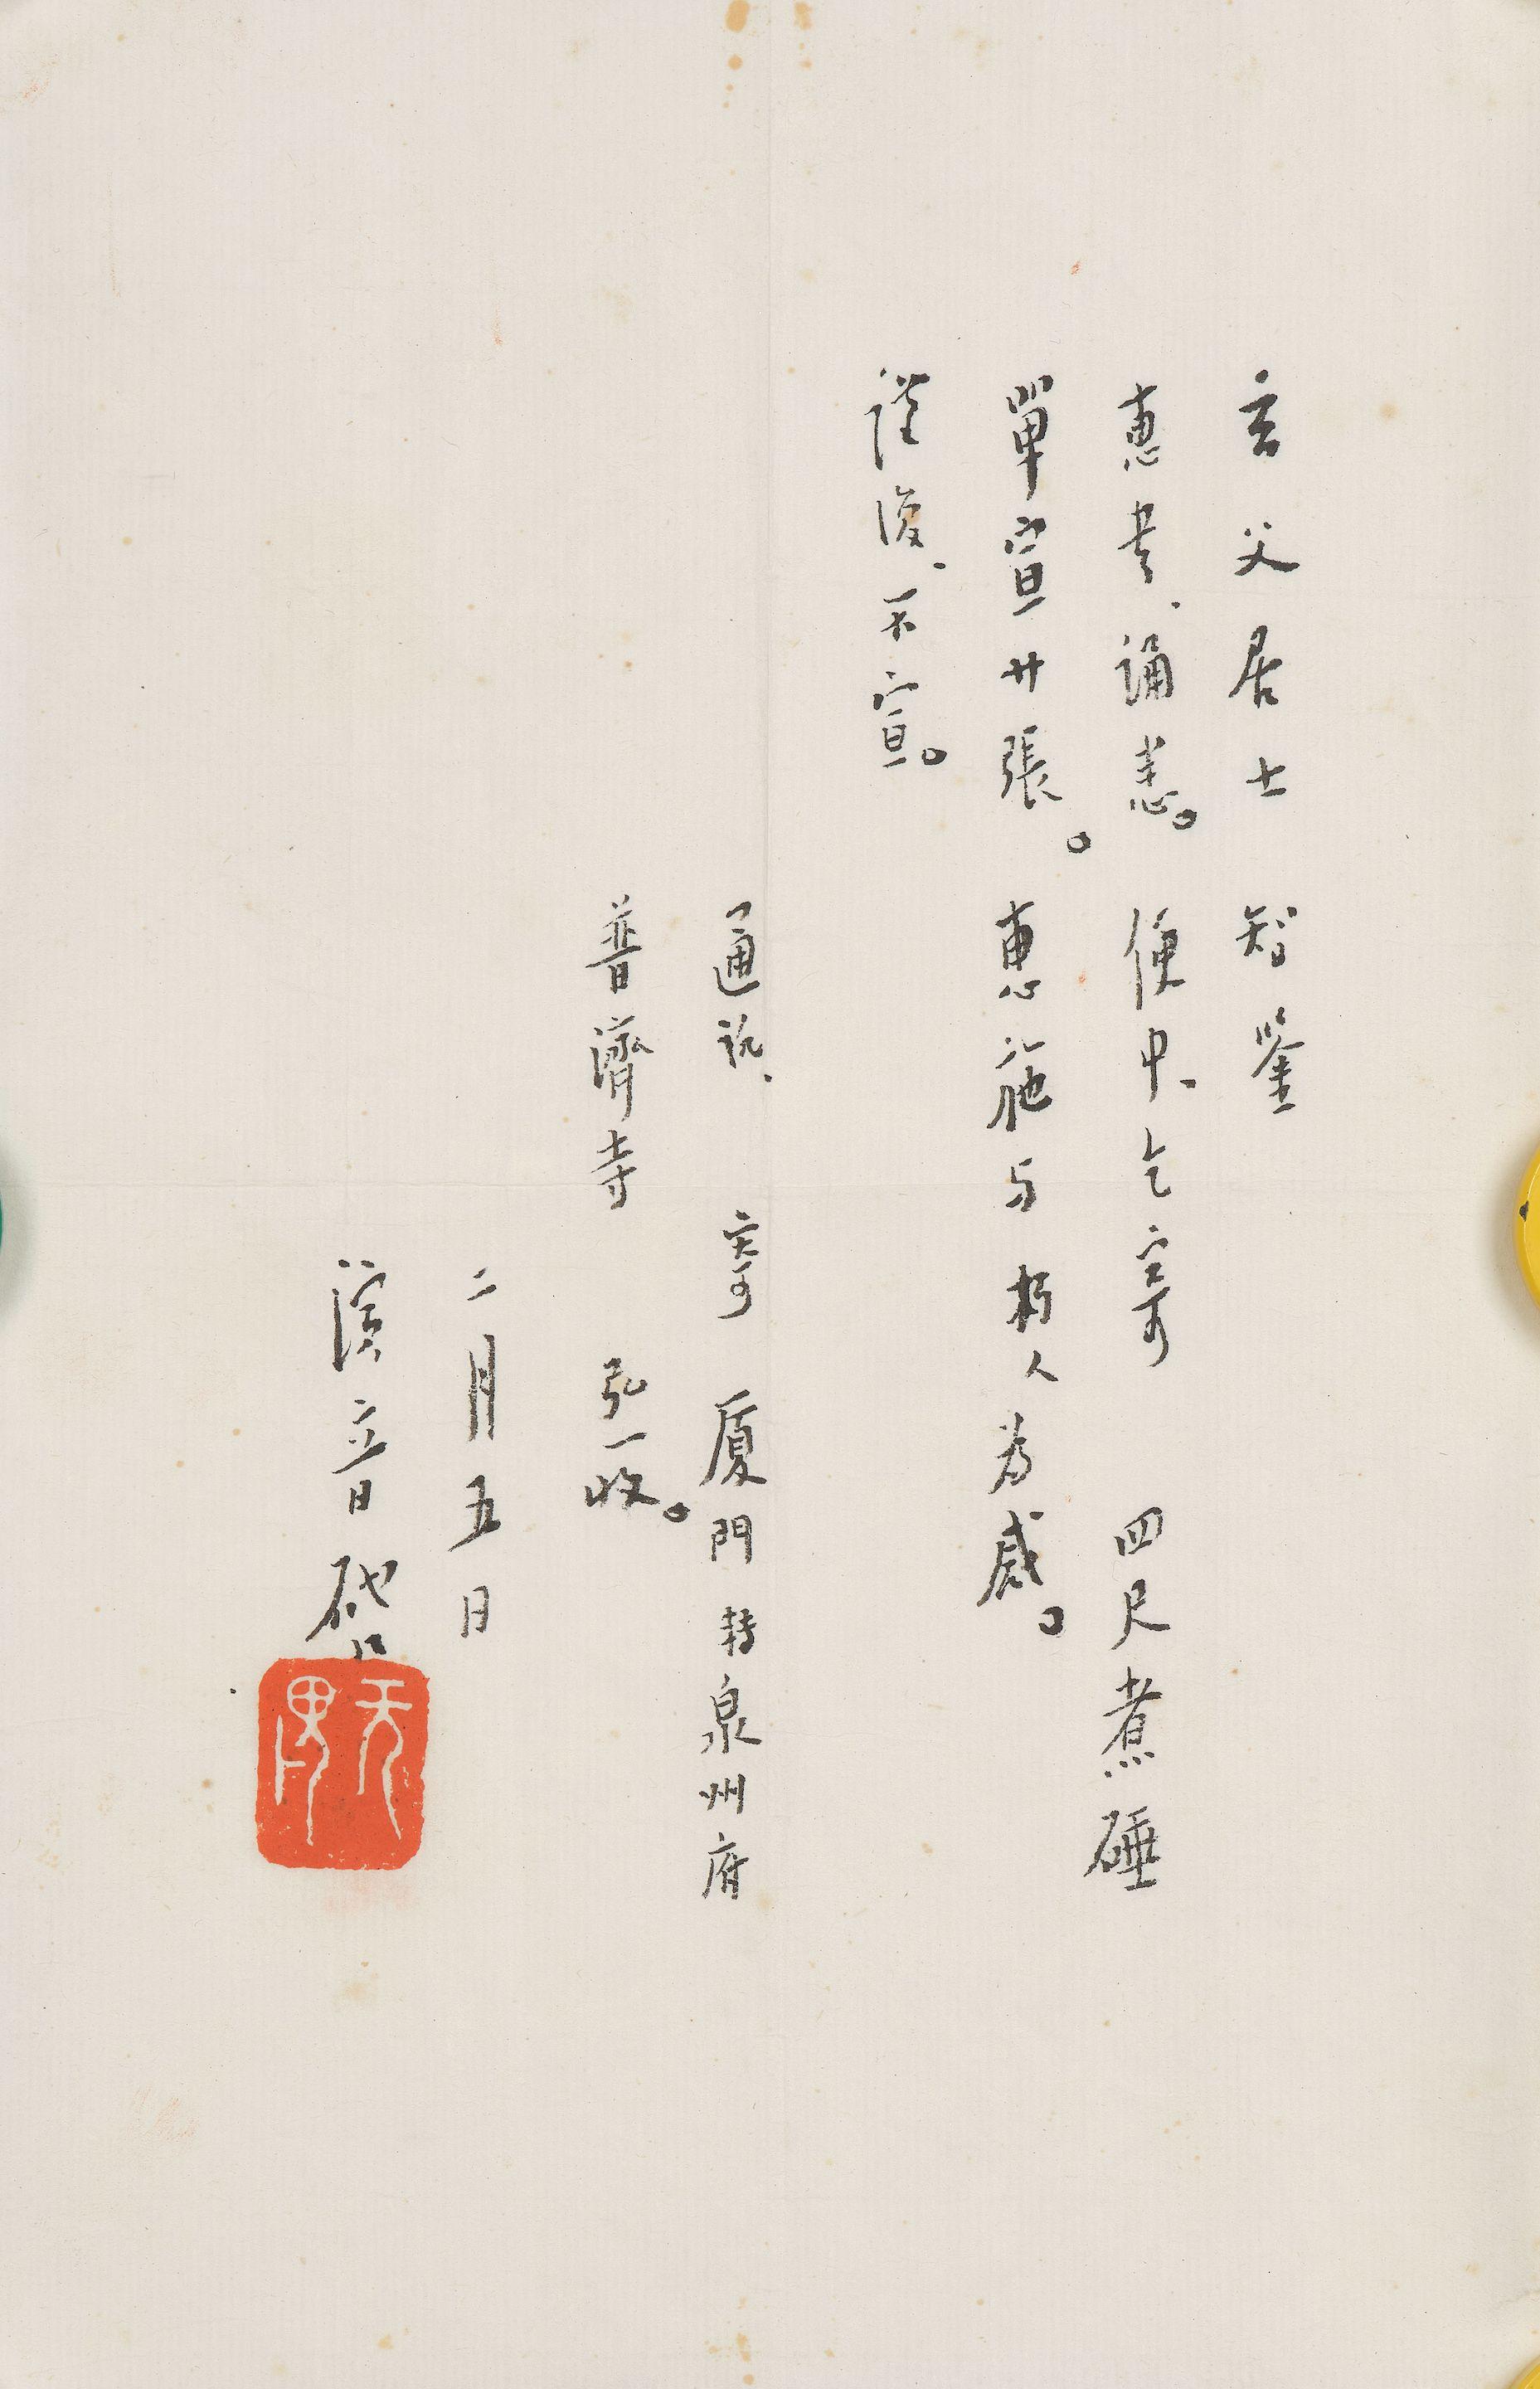 言父居士 智鑒
惠書、誦悉。便中、乞寄 四尺煮硾
單宣廿張。惠施与朽人為感。
謹復、不宣。
通訊、寄 廈門轉泉州府
普濟寺 弘一收。
二月五日
演音啓
天男